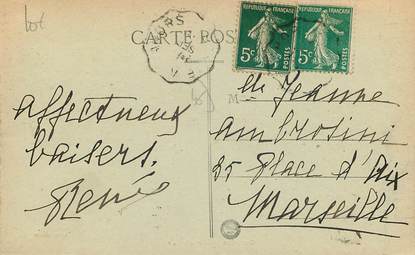 lot
CARTE POS
REPUBLIQUE FRANÇAISE
REPUBLIQUE FRANÇAISE
5c POSTES
5c POSTES
affectueux
baisers.
Renée
M
lle Jeanne
Ambrosini
25 Place d'Aix
Marseille